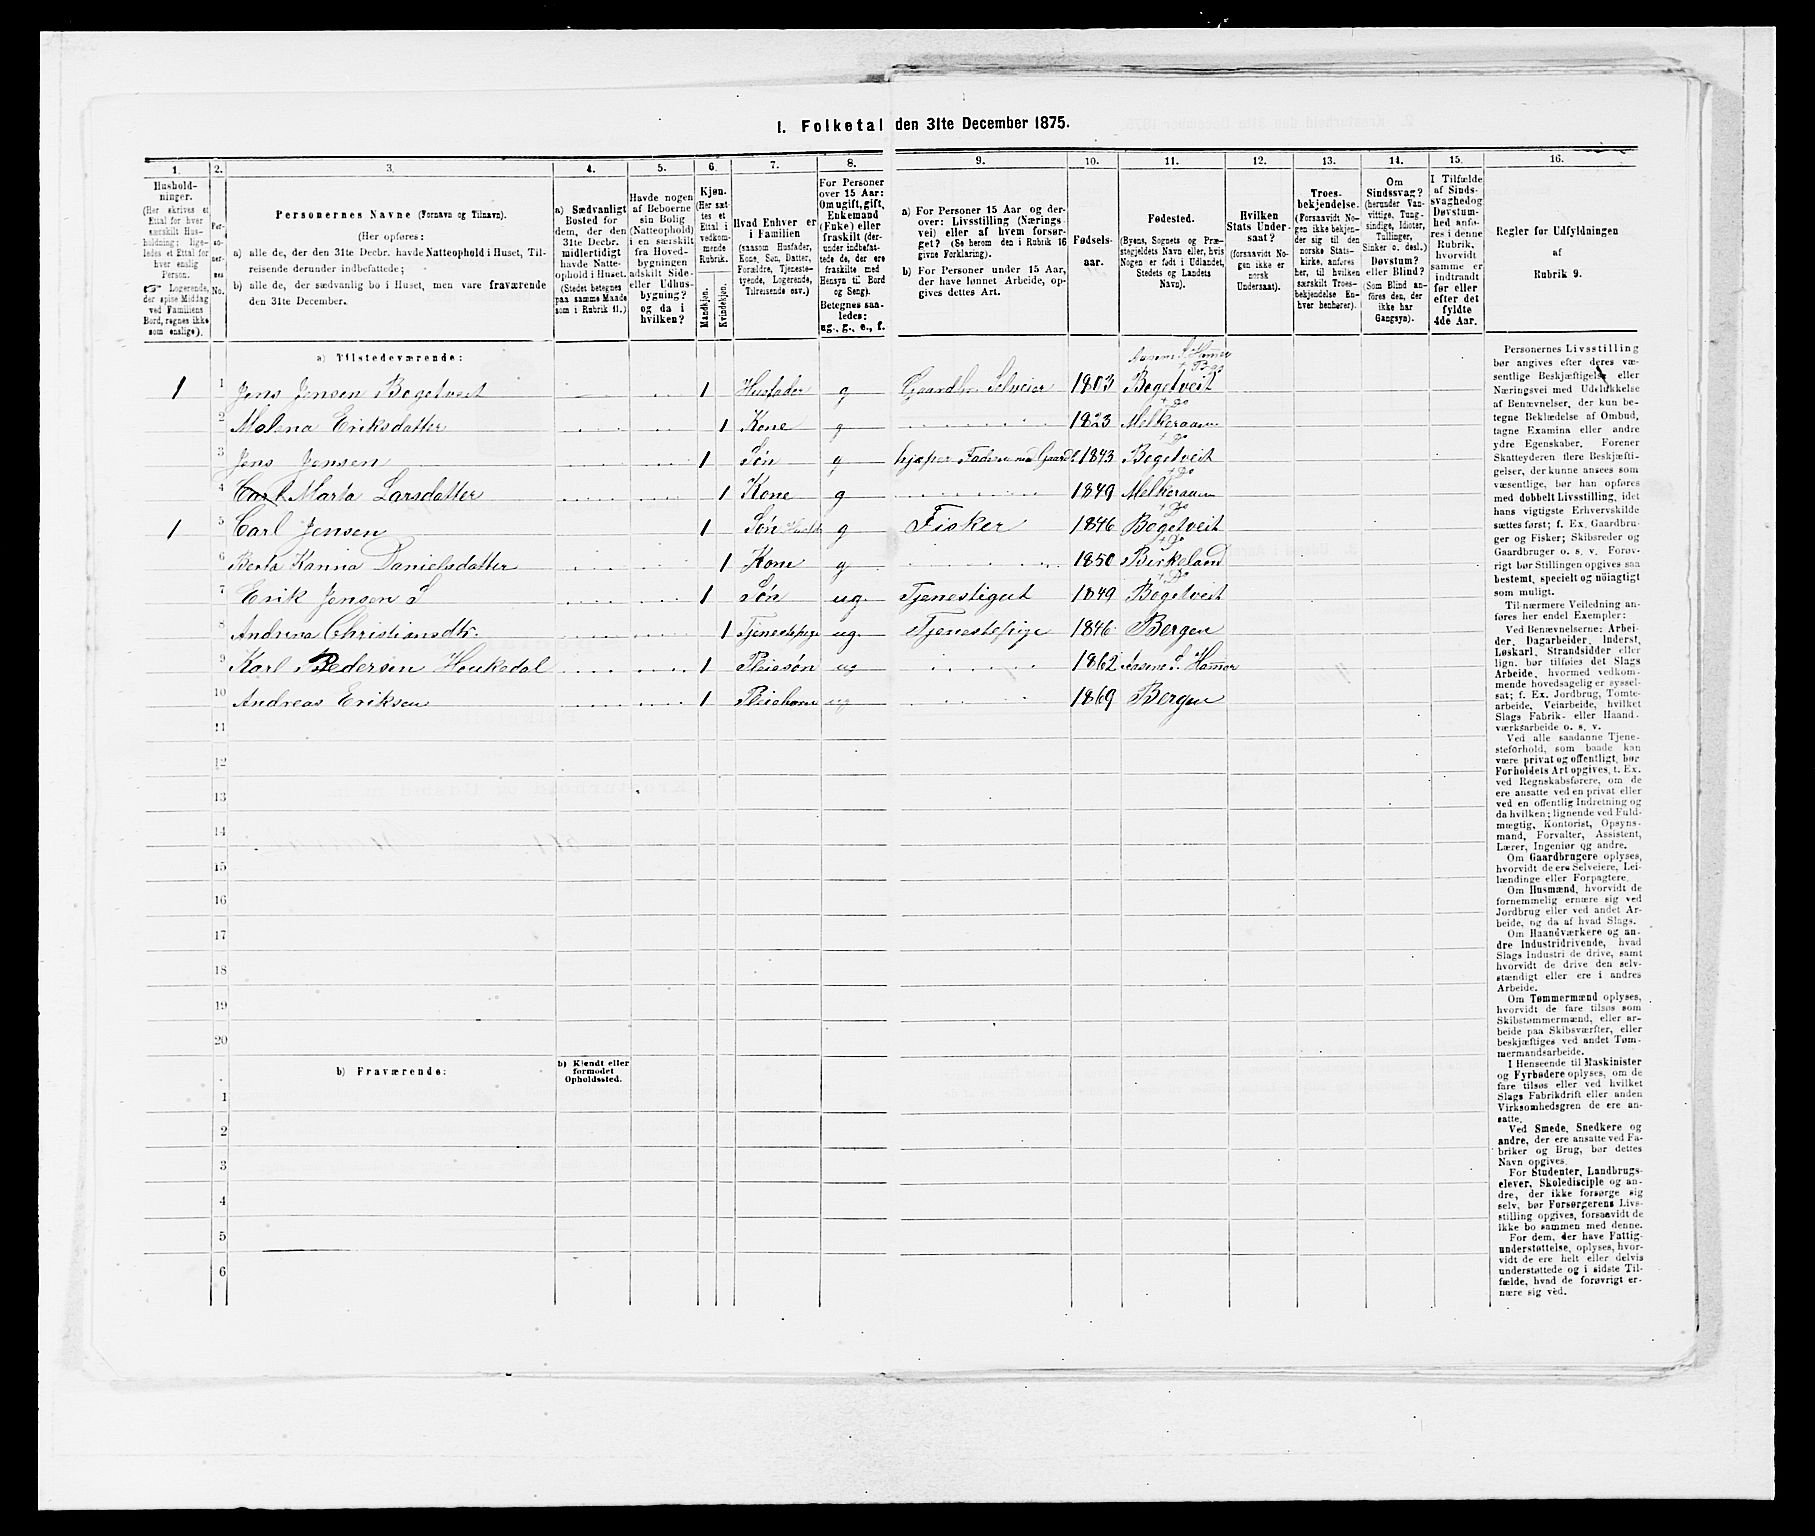 I. Folketal den 31te December 1875.
1. 2. 3. 4. 5. 6. 7. 8. 9. 10. 11. 12. 13. 14. 15. 16.
Husholdninger.
(Her skrives et Ettal for hver særskilt Husholdning; ligeledes et Ettal for hver enslig Person.
☞ Logerende, der spise Middag ved Familiens Bord, regnes ikke som enslige).
Personernes No.
Personernes Navne (Fornavn og Tilnavn).
(Her opføres:
a) alle de, der den 31te Decbr. havde Natteophold i Huset, Tilreisende derunder indbefattede;
b) alle de, der sædvanlig bo i Huset, men vare fraværende den 31te December.
a) Sædvanligt Bosted for dem, der den 31te Decbr. midlertidigt havde Natteophold i Huset.
(Stedet betegnes paa samme Maade som i Rubrik 11.)
Havde nogen af Beboerne sin Bolig (Natteophold) i en særskilt fra Hovedbygningen adskilt Side- eller Udhusbygning? og da i hvilken?
Kjøn.
(Her sættes et Ettal i vedkommende Rubrik.
Mandkjøn.
Kvindekjøn.
Hvad Enhver er i Familien
(saasom Husfader, Kone, Søn, Datter, Forældre, Tjenestetyende, Logerende, Tilreisende osv.)
For Personer over 15 Aar: Om ugift, gift, Enkemand (Enke) eller fraskilt (derunder indbefattede de, der ere fraskilte med Hensyn til Bord og Seng).
Betegnes saaledes: ug., g., e., f.
a) For Personer 15 Aar og derover: Livsstilling (Næringsvei) eller af hvem forsørget? (Se herom den i Rubrik 16 givne Forklaring).
b) For Personer under 15 Aar, der have lønnet Arbeide, opgives dettes Art.
Fødselsaar.
Fødested.
(Byens, Sognets og Præstegjeldets Navn eller, hvis Nogen er født i Udlandet, Stedets og Landets Navn).
Hvilken Stats Undersaat?
(forsaavidt Nogen ikke er norsk Undersaat).
Troesbekjendelse.
(Forsaavidt Nogen ikke bekjender sig til den norske Statskirke, anføres her, til hvilken særskilt Troesbekjendelse Enhver henhører).
Om Sindssvag? (herunder Vanvittige, Tungsindige, Idioter, Tullinger, Sinker o. desl.) Døvstum? eller Blind?
(Som Blind anføres den, der ikke har Gangsyn).
I Tilfælde af Sindssvaghed og Døvstumhed anføres i denne Rubrik, hvorvidt samme er indtraadt før eller efter det fyldte 4de Aar.
Regler for Udfyldningen
af
Rubrik 9.
a) Tilstedeværende:
1 1 Jens Jensen Bogetveit 1 Husfader g Gaardbr. Selveier 1803 Bogetveit
2 Malena Eriksdatter 1 Kone g 1823 Melkeraaen
3 Jens Jensen 1 Søn g hjælper Faderen med Gaardb. 1843 Bogetveit
4 Carl Marta Larsdatter 1 Kone g 1849 Melkeraaen
1 5 Carl Jensen 1 Søn g Fisker 1846 Bogetveit
6 Berta Kanna Danielsdatter 1 Kone g 1850 Birkeland
7 Erik Jensen S 1 Søn ug Tjenestegut 1849 Bogetveit
8 Andrina Christiansdtr. 1 Tjenestepige ug. Tjenestepige 1846 Bergen
9 Karl Pedersen Houkedal 1 Pleiesøn ug 1862 Aasene S. Hamer
10 Andreas Eriksen 1 ug 1869 Bergen
11
12
13
14
15
16
17
18
19
20
b) Fraværende:
b) Kjendt eller formodet Opholdssted.
1
2
3
4
5
6
Personernes Livsstilling bør angives efter deres væsentlige Beskjæftigelse eller Næringsvei med Udelukkelse af Benævnelser, der kun betegne Beklædelse af Ombud, tagne Examina eller andre ydre Egenskaber. Forener Skatteyderen flere Beskjæftigelser, der kunne ansees som væsentlige, bør han opføres med dobbelt Livsstilling, idet hans vigtigste Erhvervskilde sættes først; f. Ex. Gaardbruger og Fisker; Skibsreder og Gaardbruger o. s. v. Forøvrigt bør Stillingen opgives saa bestemt, specielt og nøiagtigt som muligt.
Til nærmere Veiledning anføres her endel Exempler:
Ved Benævnelserne: Arbeider, Dagarbeider, Inderst, Løskarl, Strandsidder eller lign. bør tilføies det Slags Arbeide, hvormed vedkommende hovedsagelig er sysselsat; f. Ex. Jordbrug, Tomtearbeide, Veiarbeide, hvilket Slags Fabrik- eller Haandværksarbeide o. s. v.
Ved alle saadanne Tjenesteforhold, som baade kan være private og offentligt, bør Forholdets Art opgives, t. Ex. ved Regnskabsførere, om de ere ansatte ved en privat eller ved en offentlig Indretning og da hvilken; lignende ved Fuldmægtig, Kontorist, Opsynsmand, Forvalter, Assistent, Lærer, Ingeniør og andre.
Om Gaardbrugere oplyses, hvorvidt de ere Selveiere, Leilændinge eller Forpagtere.
Om Husmænd, hvorvidt de fornemmelig ernære sig ved Jordbrug eller ved andet Arbeide, og da af hvad Slags.
Om Haandværkere og andre Industridrivende, hvad Slags Industri de drive, samt hvorvidt de drive den selvstændigt eller ere i andres Arbeide.
Om Tømmermænd oplyses, hvorvidt de fare tilsøs som Skibstømmermænd, eller arbeide paa Skibsværfter, eller beskjæftiges ved andet Tømmermandsarbeide.
I Henseende til Maskinister og Fyrbødere oplyses, om de fare tilsøs eller ved hvilket Slags Fabrikdrift eller anden Virksomhedsgren de ere ansatte.
Ved Smede, Snedkere og andre, der ere ansatte ved Fabriker og Brug, bør dettes Navn opgives.
For Studenter, Landbrugselever, Skoledisciple og andre, der ikke forsørge sig selv, bør Forsørgerens Livsstilling opgives, forsaavidt de ikke bo sammen med denne.
For dem, der have Fattigunderstøttelse, oplyses, hvorvidt de ere helt eller delvis understøttede og i sidste Tilfælde, hvad de forøvrigt ernære sig ved.